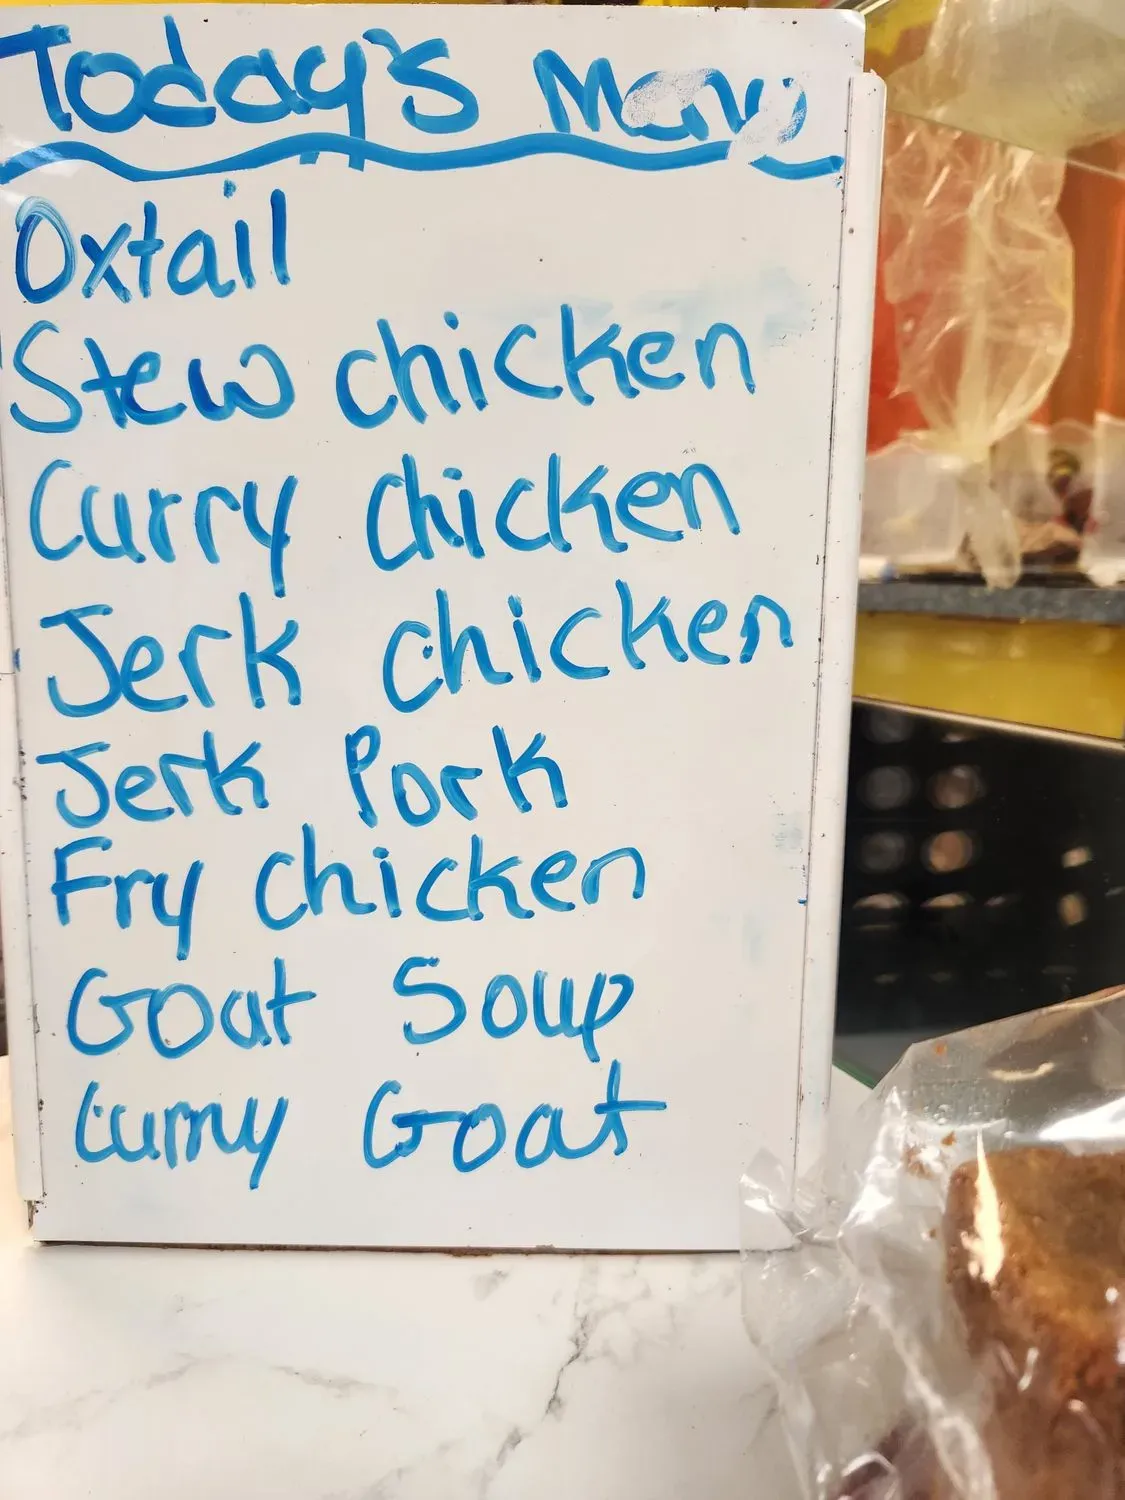 Today's Menu
Oxtail
Stew chicken
Curry chicken
Jerk chicken
Jerk Pork
Fry chicken
Goat Soup
Curry Goat